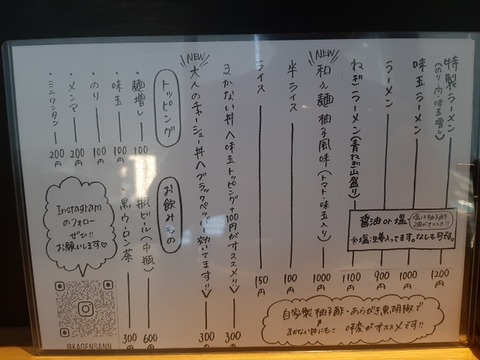 特製ラーメン
(のり・肉・味玉増し)
1200円
味玉ラーメン
1000円
ラーメン
900円
ねぎラーメン(青ねぎ山盛り)
1100円
醤油 or 塩
※塩は生姜入ってます。なしも可です。
NEW
和え麺 柚子風味(トマト、味玉入り)
1000円
半ライス
100円
ライス
150円
まかない丼 〈味玉トッピング+100円がオススメ!!〉
300円
NEW
大人のチャーシュー丼〈ブラックペッパー効いてます!!〉
300円
自家製 柚子酢・あらびき黒胡椒で
味変がオススメです!!
トッピング
・麺増し
100円
・味玉
100円
・のり
100円
・メンマ
200円
・ミニワンタン
200円
お飲みもの
・瓶ビール(中瓶)
600円
・黒ウーロン茶
300円
Instagram
のフォロー
ぜひ!!
お願いします♡
@KAGENSANN